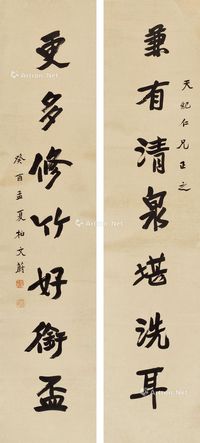 天纪仁兄正之
兼有清泉堪洗耳
更多修竹好衔盃
癸酉孟夏柏文蔚